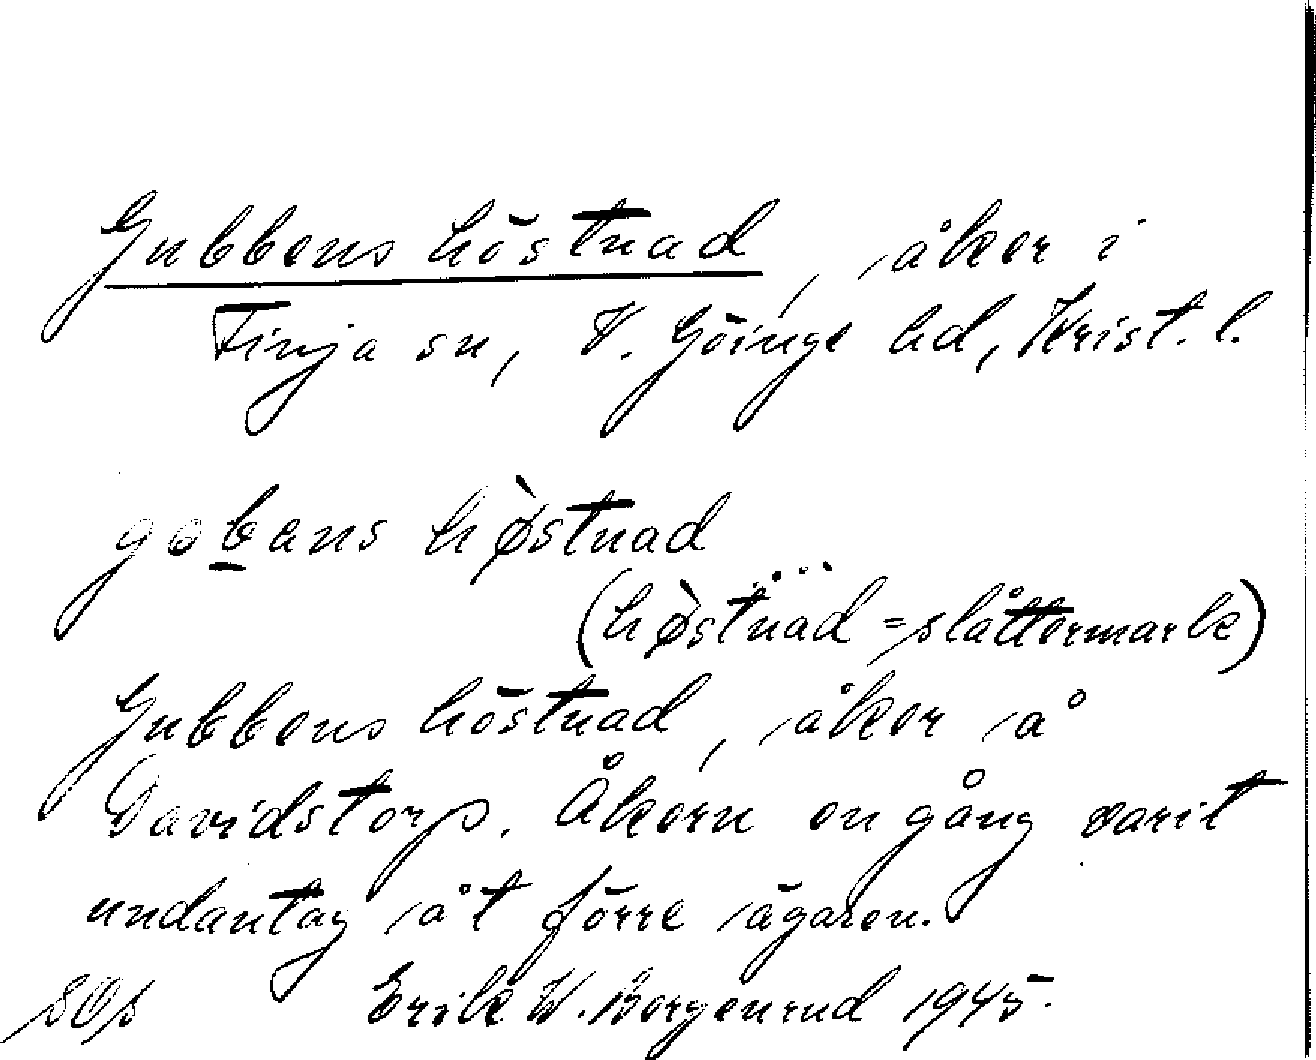 Gubbens höstnad, åker i
Finja sn, V. Göinge hd, Krist. l.
gobans hø̀stnad
(hø̀stnad = slåttermark)
Gubbens höstnad, åker å
Davidstorp. Åkern en gång varit
undantag åt förre ägaren.
Erik W. Borgenrud 1945.